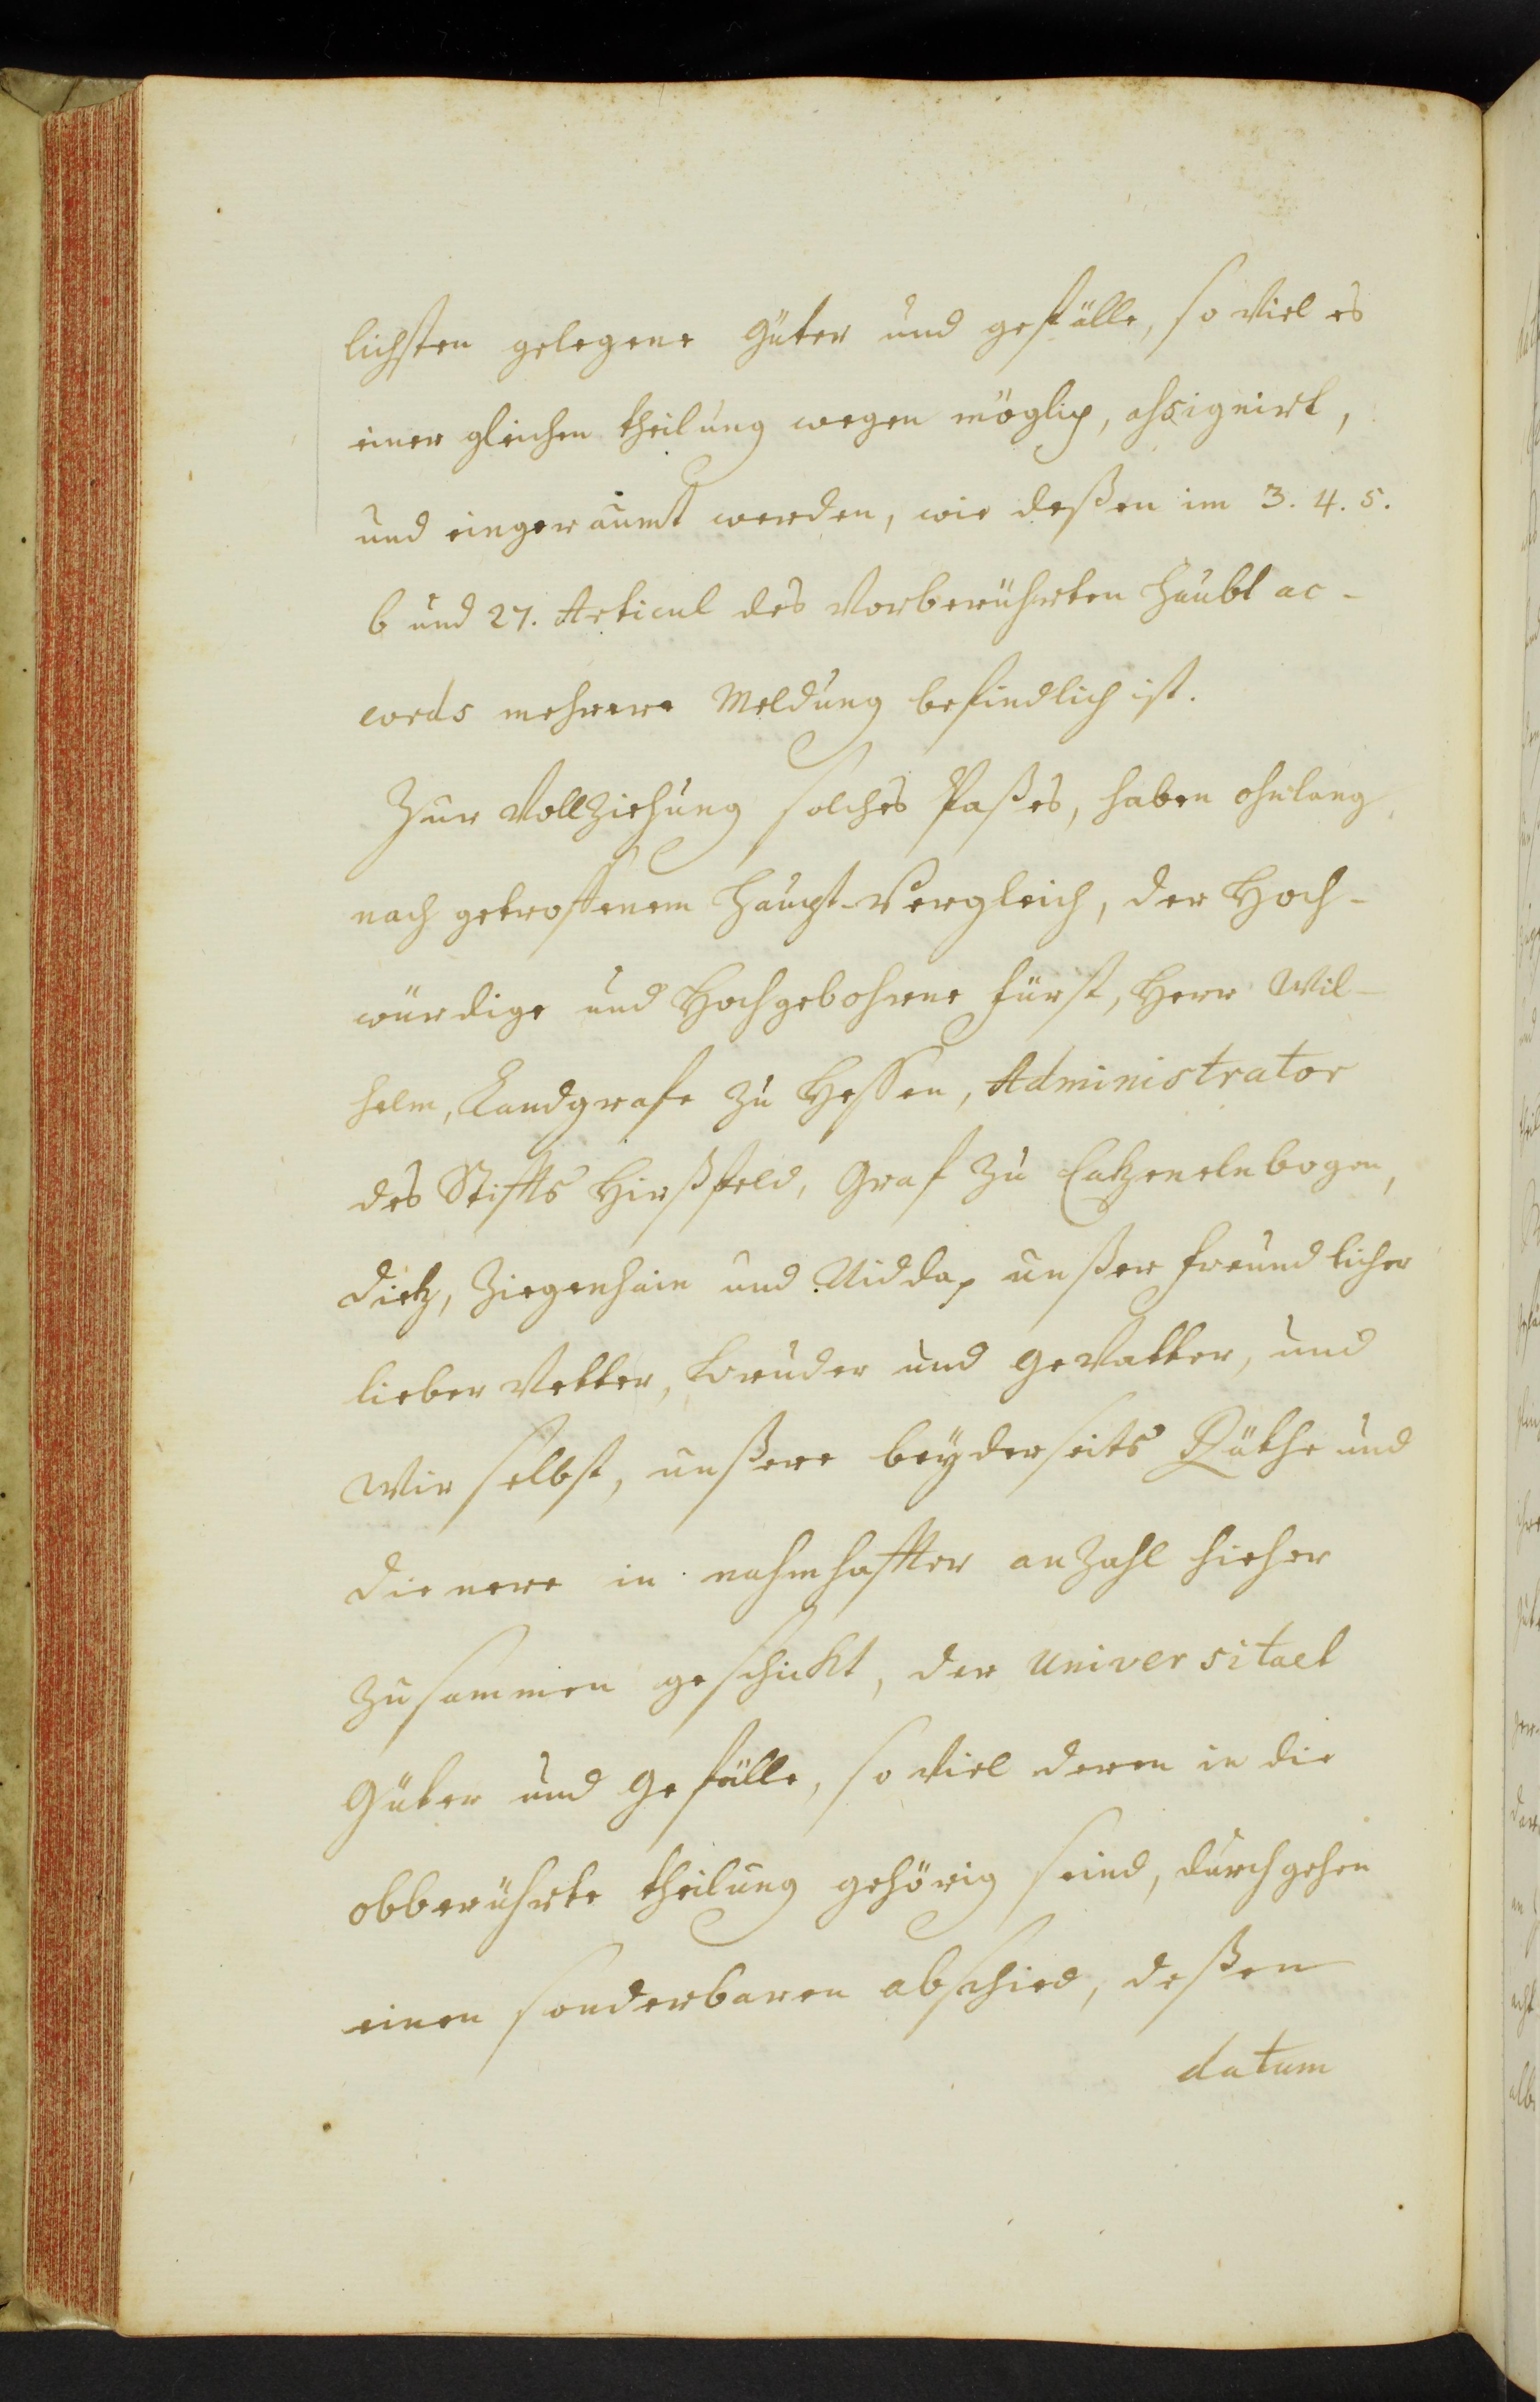 lichsten gelegene Güter und gefälle, so viel es
einer gleichen theilung wegen möglich, assignirt,
und eingeraumt werden, wie deßen im 3. 4. 5.
6 und 27. Articul des Vorberührten Haubt ac-
cords mehrere Meldung befindlich ist.
Zur Vollziehung solches Paßes, haben ohnlang
nach getroffenem Haupt-Vergleich, der Hoch-
würdige und Hochgebohrne Fürst, Herr Wil-
helm, Landgrafe zu Hessen, Administrator
des Stiffts Hirßfeld, Graf zu Catzenelnbogen,
Dietz, Ziegenhain und Nidda, unßer freundlicher
lieber Vetter, Bruder und Gevatter, und
Wir selbst, unßere beyderseits Räthe und
Dienere in nahmhaffter anzahl hieher
zusammen geschickt, der Universitaet
Güter und Gefälle, so viel deren in die
obberührte theilung gehörig seind, durchgehen
einen sonderbaren abschied, deßen
datum